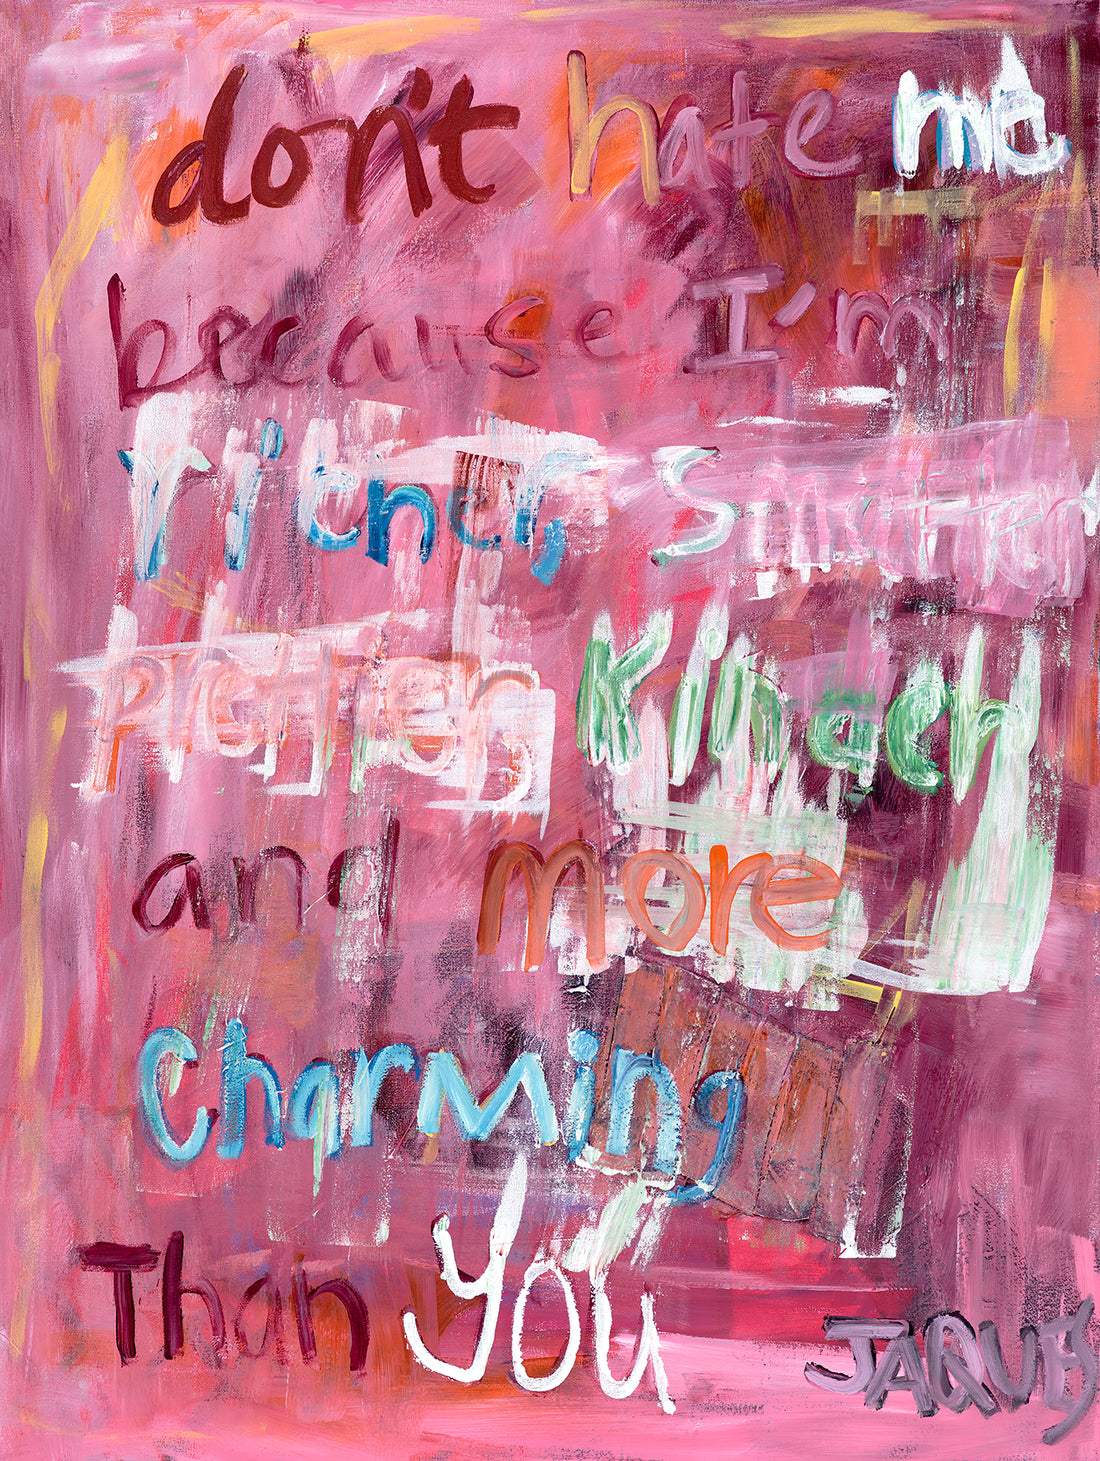 don't hate me
because I'm
richer, Smarter
prettier, Kinder
and more
Charming
Than You
JAQUES